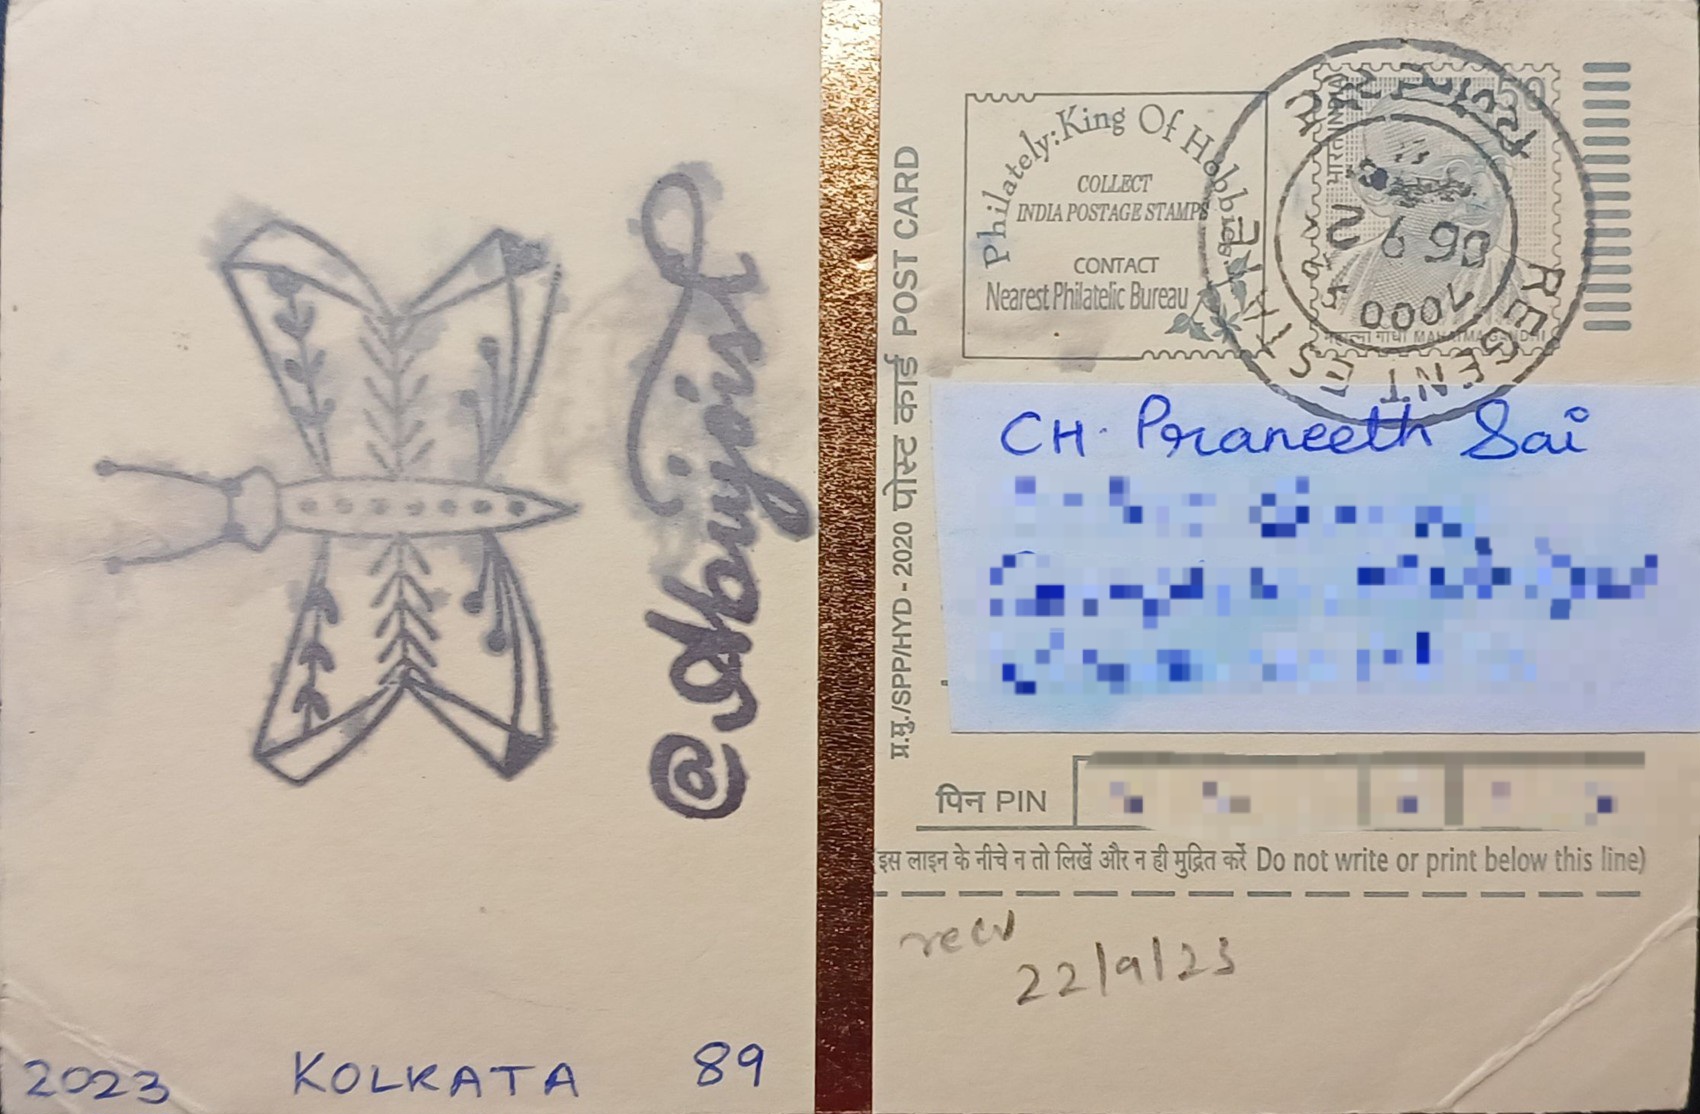 @Abhijpish
2023 KOLKATA 89
प्र.मु./SPP/HYD - 2020 पोस्ट कार्ड POST CARD
Philately: King Of Hobbies.
COLLECT
INDIA POSTAGE STAMPS
CONTACT
Nearest Philatelic Bureau
भारत INDIA
50
महात्मा गांधी MAHATMA GANDHI
REGENT ESTATE
700092
06
CH. Praneeth Sai
पिन PIN
(इस लाइन के नीचे न तो लिखें और न ही मुद्रित करें Do not write or print below this line)
recv
22/9/23